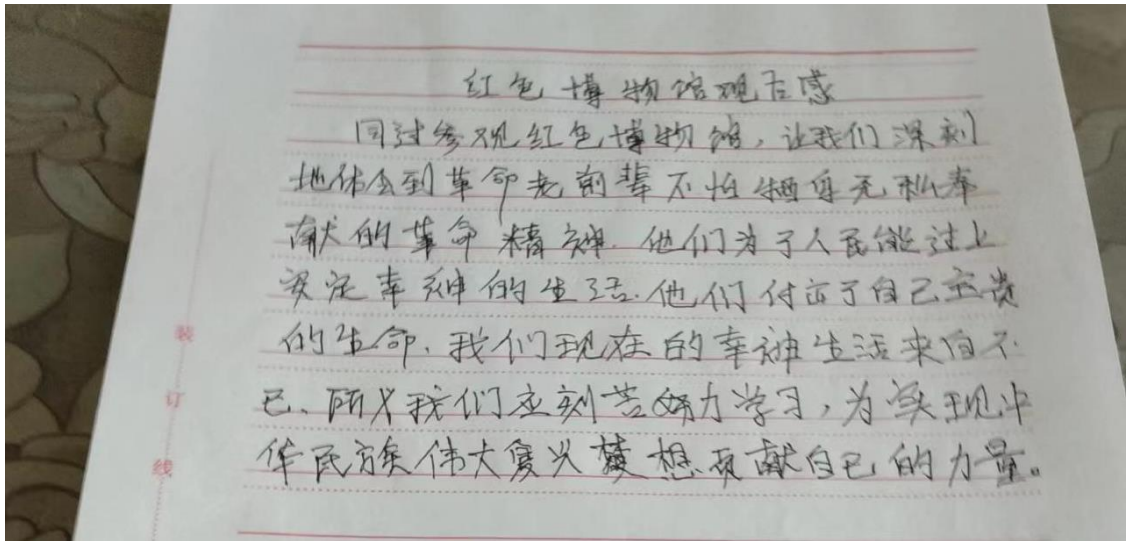 红色博物馆观后感
同过参观红色博物馆，让我们深刻
地体会到革命老前辈不怕牺牲无私奉
献的革命精神.他们为了人民能过上
安定幸神的生活.他们付出了自己宝贵
的生命.我们现在的幸神生活来自不
已、所以我们应刻苦努力学习，为实现中
华民族伟大复兴梦想贡献自己的力量。
装
订
线